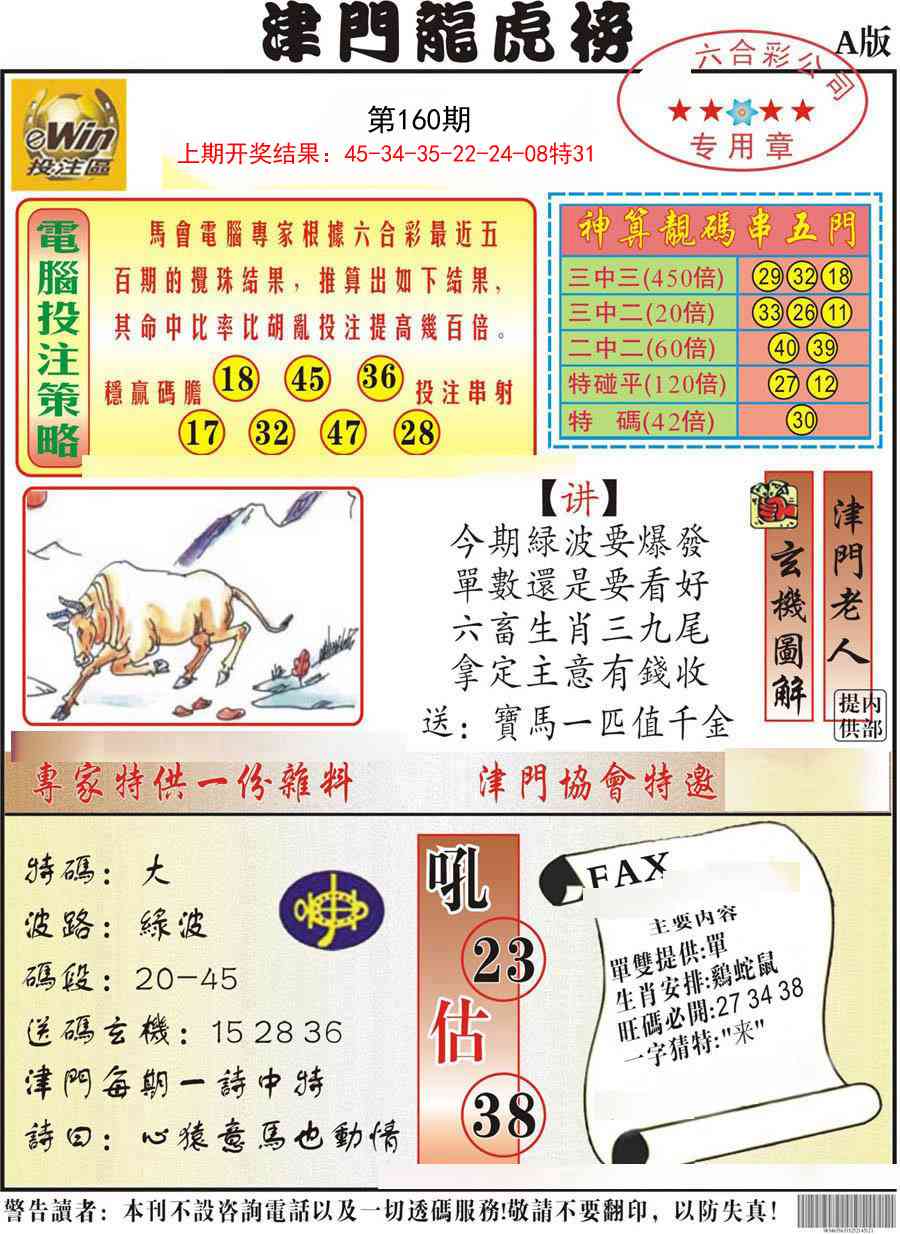 津門龍虎榜
A版
六合彩公司
专用章
eWin
投注區
第160期
上期开奖结果：45-34-35-22-24-08特31
電腦投注策略
馬會電腦專家根據六合彩最近五
百期的攪珠結果，推算出如下結果，
其命中比率比胡亂投注提高幾百倍。
穩贏碼膽 18 45 36 投注串射
17 32 47 28
神算靚碼串五門
三中三(450倍) 29 32 18
三中二(20倍) 33 26 11
二中二(60倍) 40 39
特碰平(120倍) 27 12
特 碼(42倍) 30
【讲】
今期緑波要爆發
單數還是要看好
六畜生肖三九尾
拿定主意有錢收
送：寶馬一匹值千金
玄機圖解
津門老人
内部提供
專家特供一份雜料
津門協會特邀
特碼：大
波路：緑波
碼段：20-45
送碼玄機：15 28 36
津門每期一詩中特
詩曰：心猿意馬也動情
吼
23
估
38
FAX
主要内容
單雙提供:單
生肖安排:鷄蛇鼠
旺碼必開:27 34 38
一字猜特:"来"
警告讀者：本刊不設咨詢電話以及一切透碼服務!敬請不要翻印，以防失真!